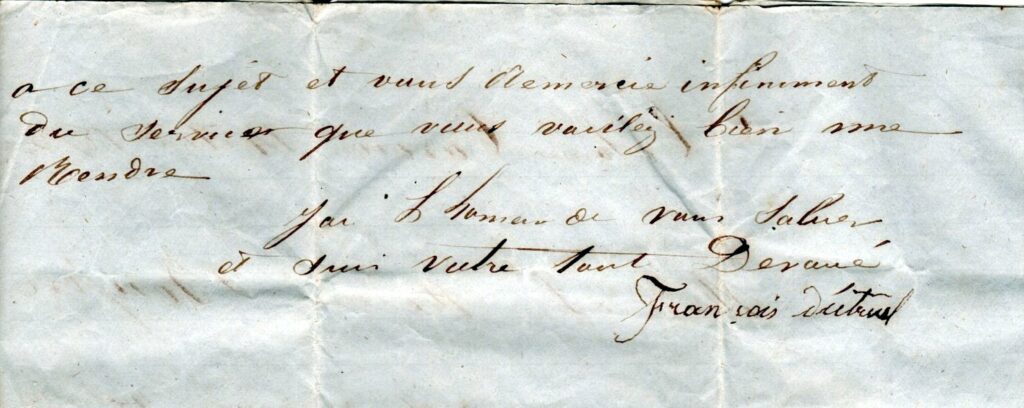 a ce sujèt et vous Remercie infiniment
du service que vous vouilez bien me
Rendre
Jai L honeur de vous Saluer
et suis votre tout Devoué
François Dutruel